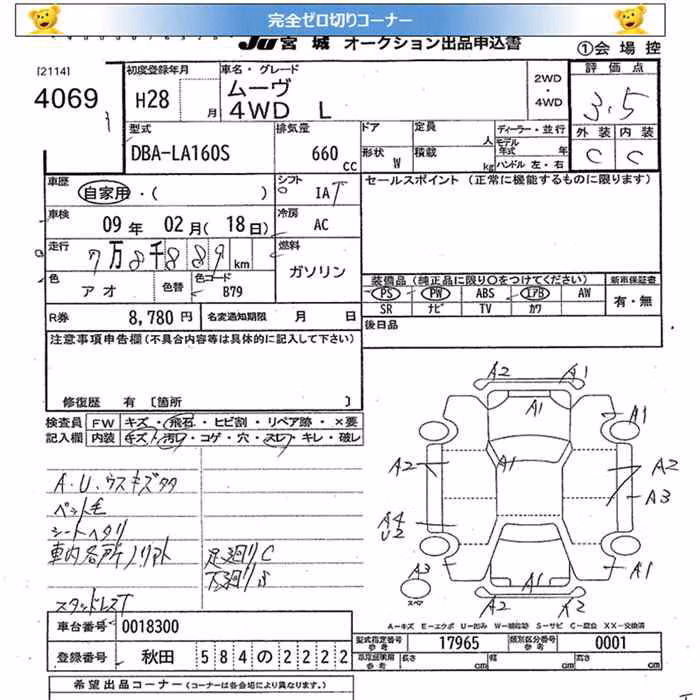 完全ゼロ切りコーナー
JU 宮 城 オークション出品申込書
①会 場 控
[2114]
4069
初度登録年月
H28 月
車名・グレード
ムーヴ
4WD L
2WD
・
4WD
評 価 点
3.5
外 装 内 装
C C
型式
DBA-LA160S
排気量
660 cc
ドア 定員 人
形状 W 積載 kg
ディーラー・並行
モデル年式 年
ハンドル 左・右
車歴
自家用・( )
シフト
IAT
セールスポイント (正常に機能するものに限ります)
車検
09 年 02 月( 18 日)
冷房
AC
走行
7万8千889 km
燃料
ガソリン
色
アオ
色替
色コード
B79
装備品 (純正品に限り○をつけてください)
新車保証書
PS PW ABS エアB AW
有・無
SR ナビ TV カワ
R券 8,780 円
名変通知期限 月 日
後日品
注意事項申告欄 (不具合内容等は具体的に記入して下さい)
修復歴 有 [箇所 ]
検査員
記入欄
FW キズ・飛石・ヒビ割・リペア跡・×要
内装 キズ・汚れ・コゲ・穴・スレ・キレ・破レ
A.U.ウスキズタタ
ペット毛
シートヘタリ
車内各所ノリアト
足廻りC
下廻りS
スタッドレスT
A2 A1
A1
A1
A1
A2
A2
A3
A4
U2
A3
スペア
A1
A1
A2 X2
A-キズ E-エクボ U-凹み W-補修跡 S-サビ C-腐食 XX-交換済
車台番号 0018300
型式指定番号 参考 17965
類別区分番号 参考 0001
登録番号 秋田 584 の 2222
長さ cm 幅 cm 高さ cm
希望出品コーナー (コーナーは各会場により異なります。)